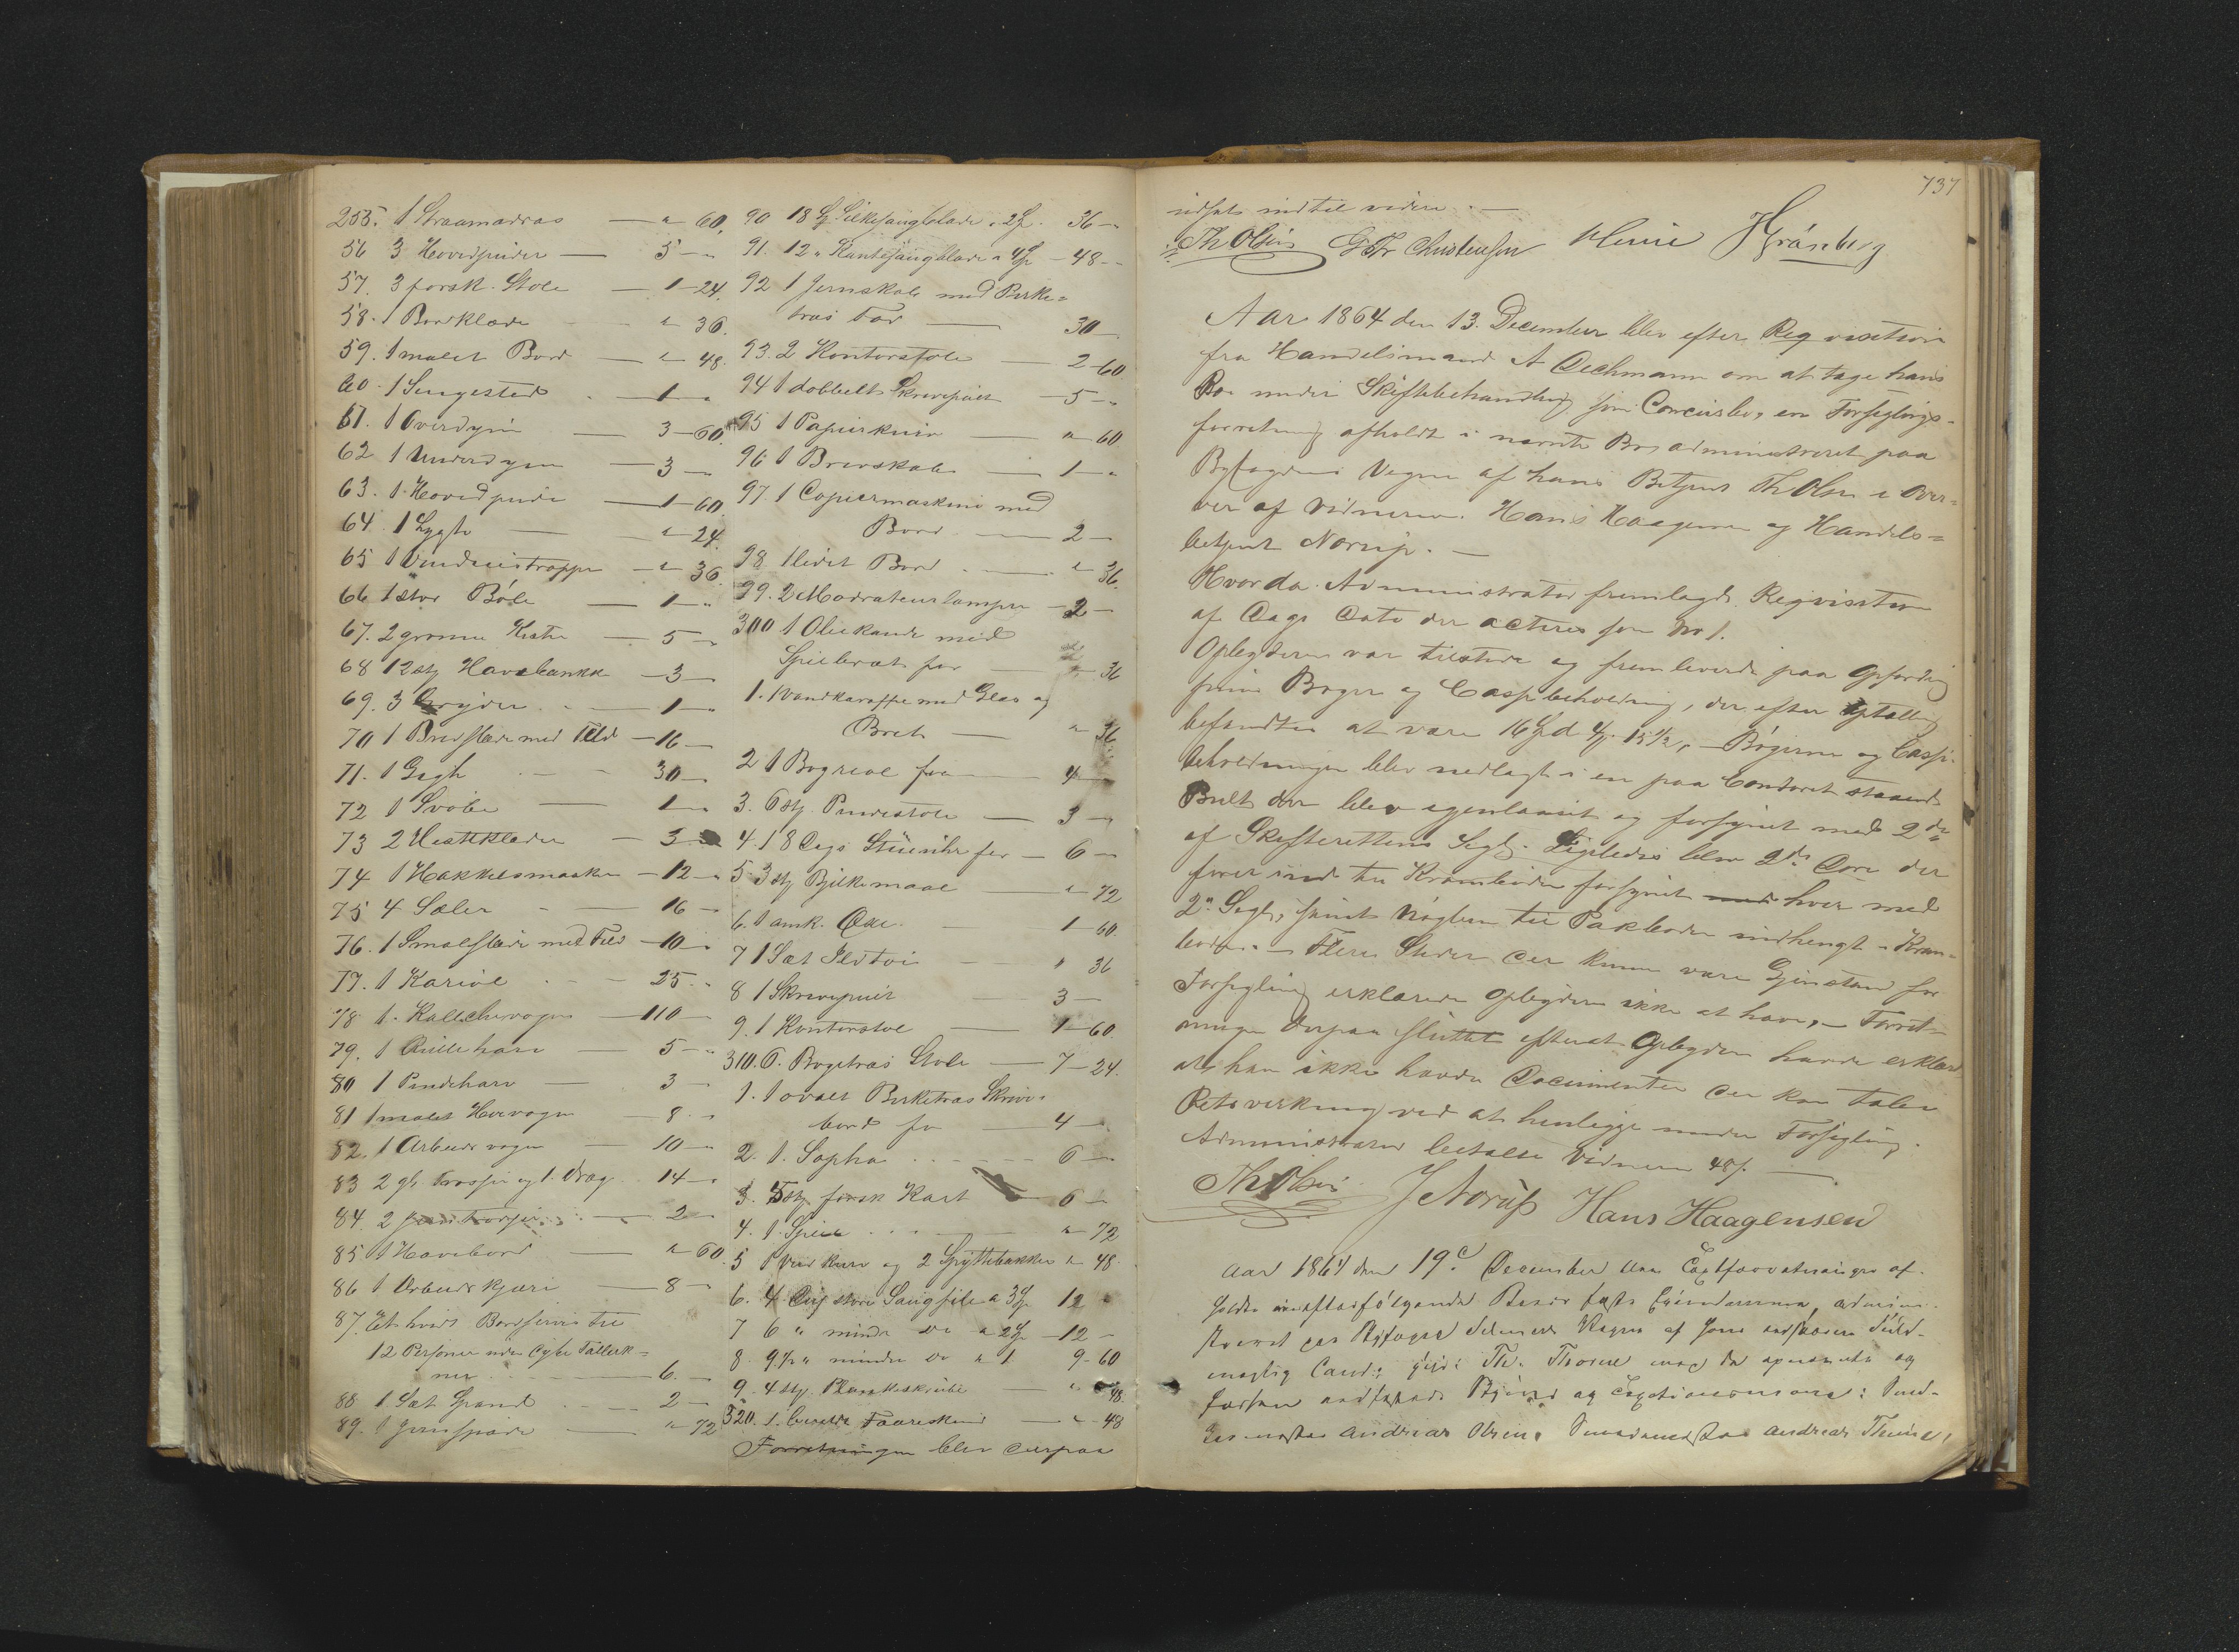 255. 1 Straamadras — " 60.
56 3 Hovedpuder — 5 — "
57. 3 forsk. Stole — 1 — 24.
58. 1 Bordklæde " 36.
59. 1 malet Bord — " 48.
60. 1 Sengested 1 — "
61. 1 Overdyne — 3 — 60.
62 1 Underdyne — 3 — "
63. 1 Hovedpude — 1 — 60.
64. 1 Lygte — " 24.
65 1 Vinduestrappe — " 36.
66 1 stor Bøle — 1 — "
67. 2 grønne Kister — 5 — "
68 12 stk Havebænke — 3 —
69. 3 Gryder — 1 — "
70 1 Bredslæde med Feld — 16 —
71. 1 Gigh — 30 —
72 1 Svøbe — 1 — "
73 2 Hesteklæder — 3
74 1 Hakkelsmaskin — 12 — "
75 4 Sæler — 16 —
76. 1 Smalslæde med Feld — 10 — "
77. 1 Kariol — 25 "
78 1 Kaleschevogn — 110 — "
79. 1 Rulleharv — 5 — "
80 1 Pindeharv — 3 —
81 1 malet Høivogn — 8 "
82. 1 Arbeidsvogn — 10 — "
83 2 gl. Trosser og 1 Drag 14 — "
84. 2 — 2 —
85 1 Havebord — " 60.
86 1 Arbeidskjærre — 8 — "
87. Et hvidt Bordservice til
12 Personer uden dybe Tallerk=
ner — 6. —
88 1 Sæt Spand — 2 —
89. 1 Jernspade — " 72
90 18 Silkesaugblade a 2 36 — "
91. 12 " Kantesaugblade a 4 — 48 —
92 1 Jernskab med Birke=
træs Fod — 30 —
93. 2 Kontorstole — 2 — 60.
94 1 dobbelt Skrivepult — 5 — "
95 1 Papirkurv — " 60
96 1 Brevskab — 1 — "
97. 1 Copiermaskine med
Bord — 2 —
98 1 lidet Bord — " 36.
99. 2 Moderateurlamper — 2 —
300 1 Oliekande med
for — " 36
1. 1 Vandkaraffe med Glas og
Bret — " 36
2 1 Bogreol for — 4 —
3. 6 stk. Pindestole — 3 — "
4. 1 8 Dags Stueuhr for — 6 —
5 3 stk Bjelkemaal — " 72
6. 1 amk. Øxe 1 — 60.
7 1 Sæt Ildtøi " 36
8 1 Skrivepult 3 —
9. 1 Kontorstol — 1 — 60
310. 6. Bøgetræs Stole — 7 — 24.
1. 1 ovalt Birketræs Skrive=
bord for — 4 —
2. 1. Sopha 6 —
3. stk forsk Kart 6 —
4. 1. Speil " 72
5 1 kurv og 2 Spyttebakker " 48
6. 4. Dus store Saugfile a 3 12 "
7 6 " mindre do a 2 — 12 —
8. 9½ " mindre do a 1 9 — 60
9. 4 stk. Plankeskrube — " 48.
320. 1. Faareskind — " 48
Forretningen blev derpaa
737
udsat indtil videre. —
Th Olsen G Fr Christensen Gränberg
Aar 1864 den 13. December blev efter Reqvisition
fra Handelsmand A Dechmann om at tage hans
Bo under Skiftebehandling som Concursbo, en Forseglings-
forretning afholdt i nævnte Bo, administreret paa
Byfogdens Vegne af hans Betjent Th Olsen i Over=
vær af Vidnerne Hans Haagensen og Handels=
betjent Norup. —
Hvorda Administrator fremlagde Reqvisition
af Dags Dato der acteres som No 1.
Opbyderen var tilstede og fremleverede paa Opfordring
sine Bøger og Cassebeholdning, der efter Optælling
befandtes at være 16 Spd 4 15½, — Bøgerne og Casse-
beholdningen blev nedlagt i en paa Contoret staaende
Pult der blev igjenlaaset og forsynet med 2de
af Skifterettens Segl. Ligeledes blev 2de Døre der
fører ind til Kramboden forsynet med hver med
2de Segl, samt Nøglen til Pakboden indhengt i Kram-
boden. — Flere Steder der kunne være Gjenstand for
Forsegling erklærede Opbyderen ikke at have, — Forret-
ningen derpaa sluttet efterat Opbyderen havde erklæret
at han ikke havde Documenter der kan tabe
Retsvirkning ved at henligge under Forsegling.
Administrator betalte Vidnerne 48 s. —
Th Olsen J Norup Hans Haagensen
Aar 1864 den 19de December blev Taxtforretningen af-
holdt over efterfølgende faste Eiendomme, admini-
streret paa Byfoged Vegne af hans edsvorne Fuld-
mægtig Cand: juris Th. Thorne med de opnævnte og
forhen edfæstede og Taxtationsmænd:
Andreas Olsen, Andreas Thune,